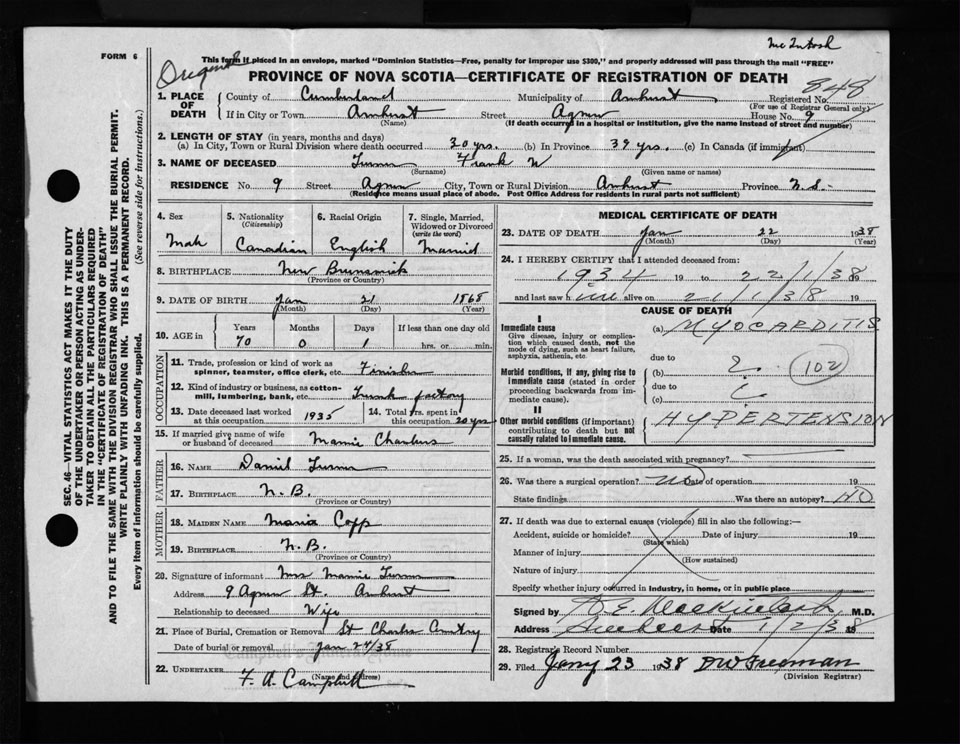 McIntosh
FORM 6
This form if placed in an envelope, marked "Dominion Statistics—Free, penalty for improper use $300," and properly addressed will pass through the mail "FREE"
Original
PROVINCE OF NOVA SCOTIA—CERTIFICATE OF REGISTRATION OF DEATH
848
1. PLACE OF DEATH
County of Cumberland Municipality of Amherst Registered No.
(For use of Registrar General only)
If in City or Town Amherst Street Agnew House No. 9
(Name) (If death occurred in a hospital or institution, give the name instead of street and number)
2. LENGTH OF STAY (in years, months and days)
(a) In City, Town or Rural Division where death occurred 20 yrs. (b) In Province 39 yrs. (c) In Canada (if immigrant)
3. NAME OF DECEASED Turner Frank W
(Surname) (Given name or names)
RESIDENCE No. 9 Street Agnew City, Town or Rural Division Amherst Province N.S.
(Residence means usual place of abode. Post Office Address for residents in rural parts not sufficient)
4. Sex
Male
5. Nationality
(Citizenship)
Canadian
6. Racial Origin
English
7. Single, Married, Widowed or Divorced
(write the word)
Married
8. BIRTHPLACE New Brunswick
(Province or Country)
9. DATE OF BIRTH Jan 21 1868
(Month) (Day) (Year)
10. AGE in Years Months Days If less than one day old
70 0 1 hrs. or min.
OCCUPATION
11. Trade, profession or kind of work as
spinner, teamster, office clerk, etc. Finisher
12. Kind of industry or business, as cotton-
mill, lumbering, bank, etc. Trunk factory
13. Date deceased last worked at this occupation 1935
14. Total yrs. spent in this occupation 20 yrs
15. If married give name of wife
or husband of deceased Mamie Charters
FATHER
16. NAME Daniel Turner
17. BIRTHPLACE N.B.
(Province or Country)
MOTHER
18. MAIDEN NAME Maria Copp
19. BIRTHPLACE N.B.
(Province or Country)
20. Signature of informant Mrs Mamie Turner
Address 9 Agnew St. Amherst
Relationship to deceased Wife
21. Place of Burial, Cremation or Removal St Charles Cemetery
Date of burial or removal Jan 24/38
22. UNDERTAKER F. A. Campbell
(Name and Address)
MEDICAL CERTIFICATE OF DEATH
23. DATE OF DEATH Jan 22 1938
(Month) (Day) (Year)
24. I HEREBY CERTIFY that I attended deceased from:
1934 19 to 22/1/38 19
and last saw him alive on 21/1/38 19
CAUSE OF DEATH
I
Immediate cause
Give disease, injury or complication which caused death, not the mode of dying, such as heart failure, asphyxia, asthenia, etc.
(a) MYOCARDITIS
due to
Morbid conditions, if any, giving rise to immediate cause (stated in order proceeding backwards from immediate cause).
(b) ? 102
due to
(c)
II
Other morbid conditions (if important) contributing to death but not causally related to immediate cause.
HYPERTENSION
25. If a woman, was the death associated with pregnancy?
26. Was there a surgical operation? no Date of operation 19
State findings Was there an autopsy? NO
27. If death was due to external causes (violence) fill in also the following:—
Accident, suicide or homicide? Date of injury 19
(State which)
Manner of injury
(How sustained)
Nature of injury
Specify whether injury occurred in industry, in home, or in public place
Signed by M.D.
Address Amherst Date 1/2/38 19
28. Registrar's Record Number
29. Filed Jany 23 1938 DW Freeman
(Division Registrar)
SEC. 46—VITAL STATISTICS ACT MAKES IT THE DUTY
OF THE UNDERTAKER OR PERSON ACTING AS UNDER-
TAKER TO OBTAIN ALL THE PARTICULARS REQUIRED
IN THE "CERTIFICATE OF REGISTRATION OF DEATH"
AND TO FILE THE SAME WITH THE DIVISION REGISTRAR WHO SHALL ISSUE THE BURIAL PERMIT.
WRITE PLAINLY WITH UNFADING INK. THIS IS A PERMANENT RECORD.
Every item of information should be carefully supplied. (See reverse side for instructions.)